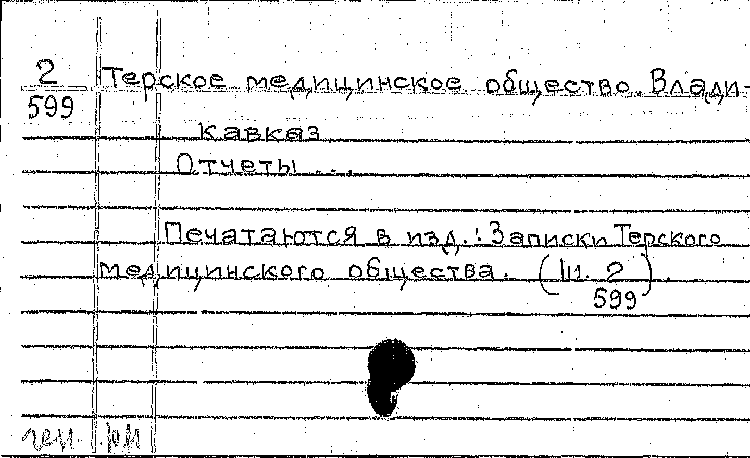 2
599
Терское медицинское общество. Влади-
кавказ
Отчеты ...
Печатаются в изд.: Записки Терского
медицинского общества. (Ш. 2
599).